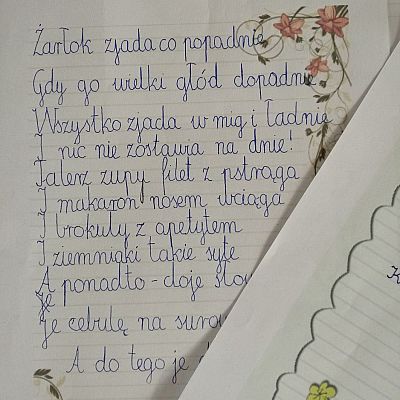 Żarłok zjada co popadnie
Gdy go wielki głód dopadnie
Wszystko zjada w mig i ładnie
I nic nie zostawia na dnie!
Talerz zupy filet z pstrąga
I makaron nosem wciąga
I brokuły z apetytem
I ziemniaki takie syte
A ponadto - doje
Je
Je cebulę na
A do tego je
K